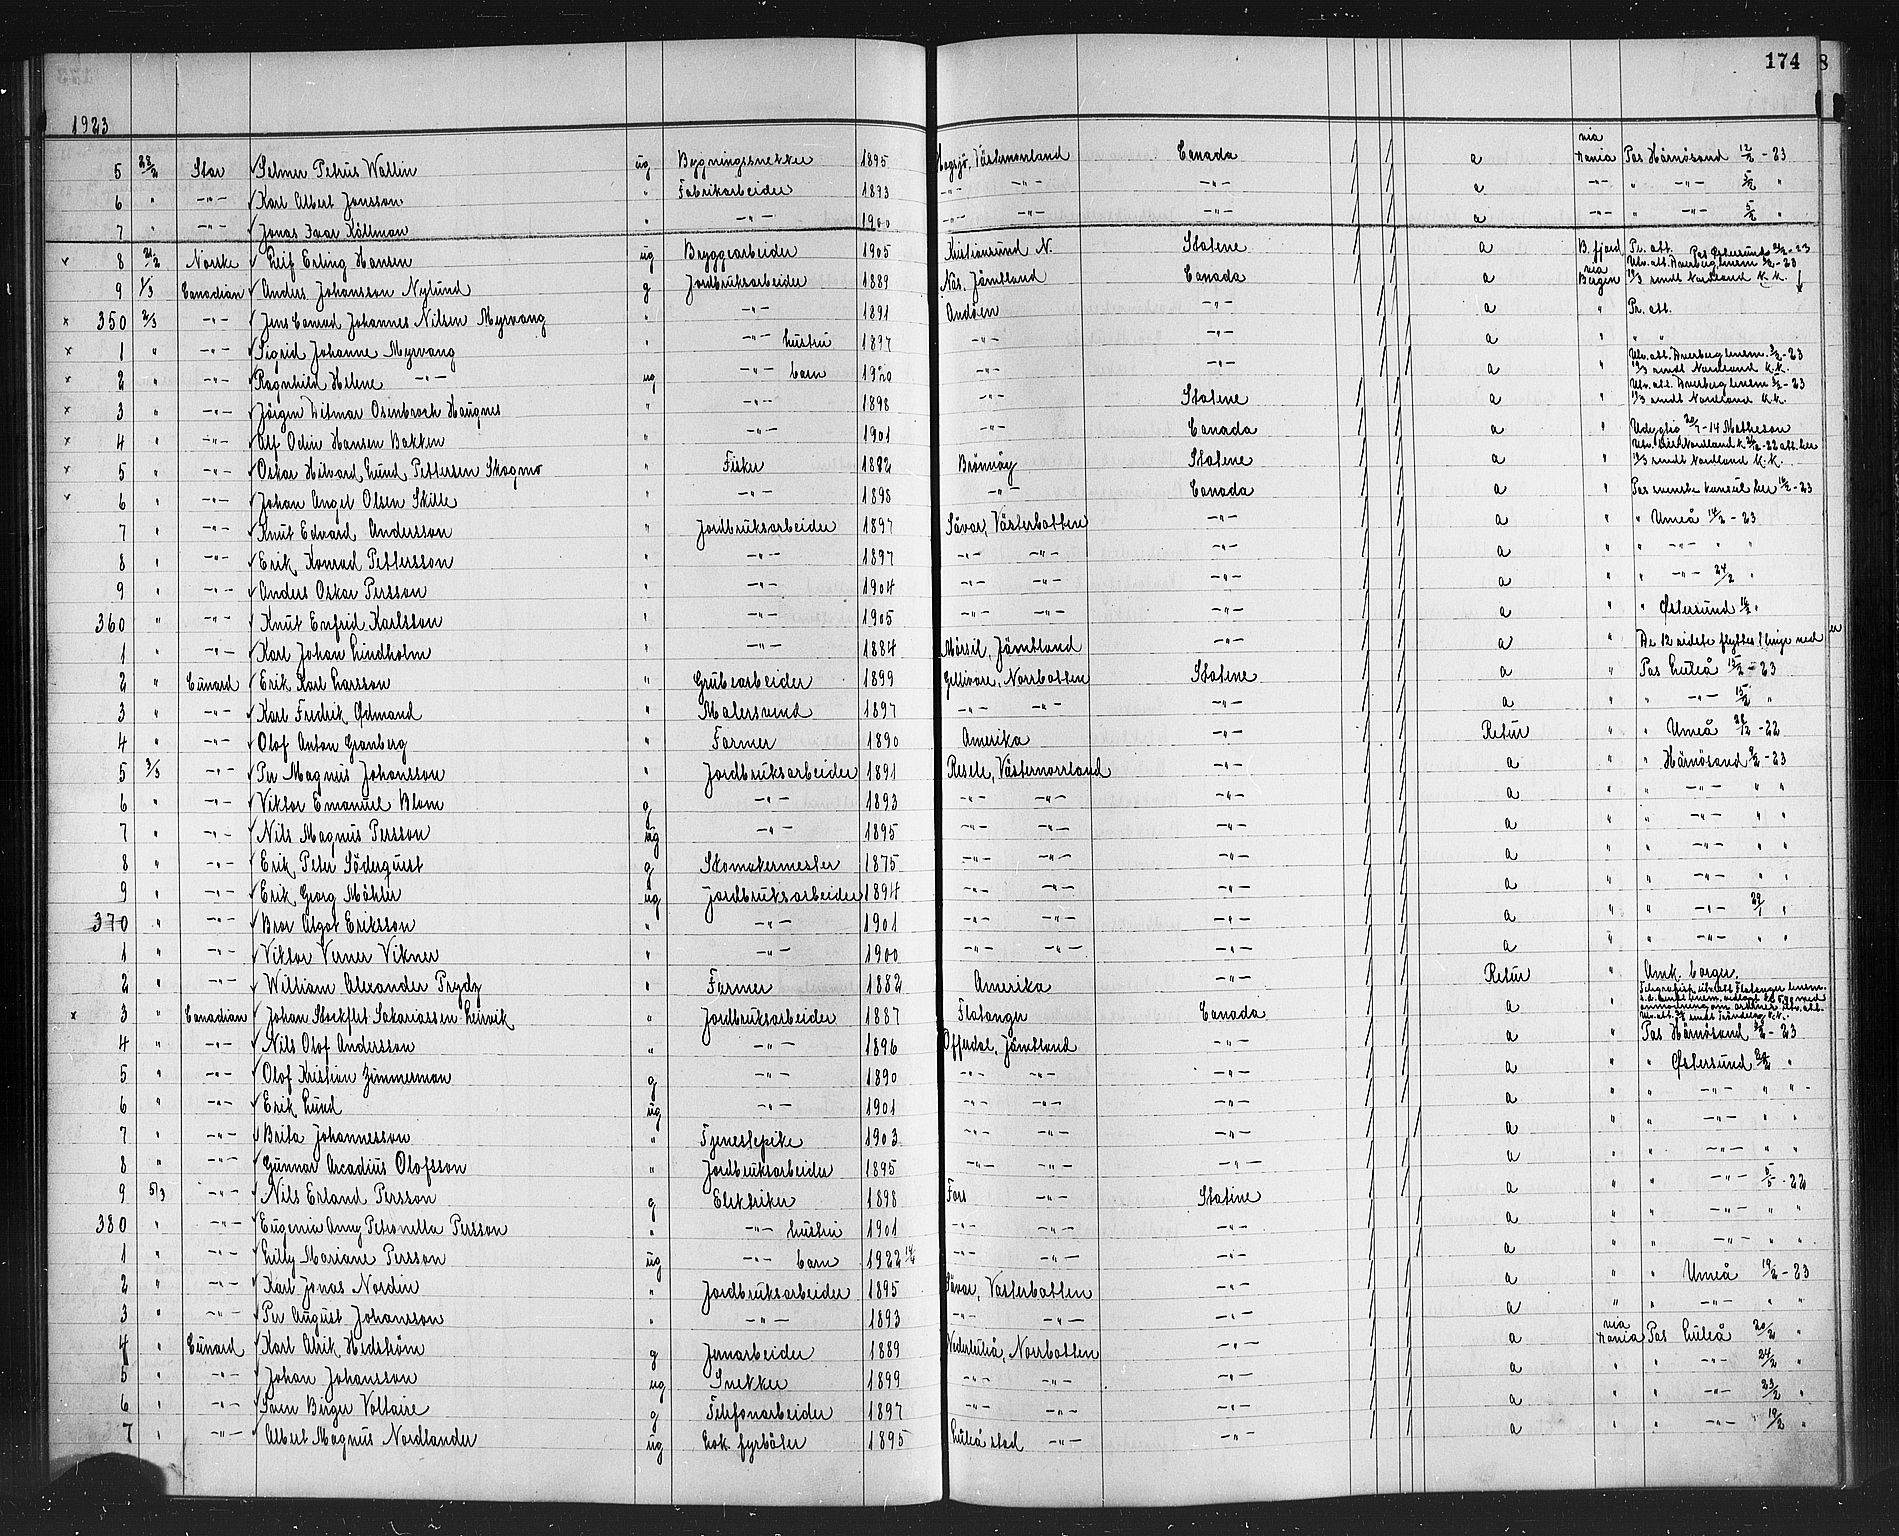 174
8
1923
5 28/2 Star Selmer Petrus Wallin ug Bygningssnekker 1895 Västernorrland Canada a via Rania Pas Härnösand 12/2 - 23
6 " -"- Karl Albert Jonsson " Fabrikarbeider 1893 -"- -"- -"- a -"- " -"- 5/2 "
7 " -"- Jonas Ivar Källman " -"- 1900 -"- -"- -"- a -"- " -"- 5/2 "
x 8 Norske Leif Erling Hansen ug Bryggearbeider 1905 Kristiansund N. Statene a B.fjord Pr. att.
9 1/3 Canadian Anders Johansson Nylund g Jordbruksarbeider 1889 Näs, Jämtland Canada a via Bergen Pas Østersund - 23
x 350 2/3 -"- Jens Conrad Johannes Nilsen Myrvang " -"- 1891 Andøen -"- a " Pr. att.
x 1 " -"- Sigrid Johanne Myrvang " -"- hustru 1897 -"- -"- a " " "
x 2 " -"- Ragnhild Helene -"- ug -"- barn 1920 -"- -"- a "
x 3 " -"- Jörgen Hilmar Osenbroch Haugnes " -"- 1898 -"- Statene a "
x 4 " -"- Alf Odin Hansen Bakken " -"- 1901 Canada a "
x 5 " -"- Oskar Hilvard Lund Pettersen Skogmo " Fisker 1882 Brönnöy Statene a "
x 6 " -"- Johan Angel Olsen Skille " -"- 1898 -"- Canada a " Pas svenske konsul her 16/2 - 23
7 " -"- Knut Edvard Andersson " Jordbruksarbeider 1897 Sävar, Västerbotten -"- a " " Umeå 14/2 - 23
8 " -"- Erik Konrad Pettersson " -"- 1897 -"- -"- -"- a " " -"- " "
9 " -"- Anders Oskar Persson " -"- 1904 -"- -"- -"- a " " -"- 24/2 "
360 " -"- Knut Enfrid Karlsson " -"- 1905 -"- -"- -"- a " " Østersund 16/2 "
1 " -"- Karl Johan Lindholm " -"- 1884 Mörsil, Jämtland -"- a " De 12 sidste flyttes 1 linje ned
2 " Cunard Erik Karl Larsson " Grubearbeider 1899 Gellivare, Norrbotten Statene a " Pas Luleå 15/2 - 23
3 " -"- Karl Fredrik Ödmand " Malersvend 1897 -"- -"- -"- a " " -"- 15/2 "
4 " -"- Olof Anton Granberg " Farmer 1890 Amerika -"- Retur " " Umeå 28/12 - 22
5 3/3 -"- Per Magnus Johansson " Jordbruksarbeider 1891 Resele, Västernorrland -"- a " " Härnösand 9/2 - 23
6 " -"- Viktor Emanuel Blom g -"- 1893 -"- -"- -"- a " " -"- " "
7 " -"- Nils Magnus Persson ug -"- 1895 -"- -"- -"- a " " -"- " "
8 " -"- Erik Peter Söderqust g Skomakermester 1875 -"- -"- -"- a " " -"- " "
9 " -"- Erik Georg Mähler ug Jordbruksarbeider 1894 -"- -"- -"- a " " -"- " "
370 " -"- Bror Algot Eriksson " -"- 1901 -"- -"- -"- a " " -"- 29/1 "
1 " -"- Viktor Verner Vikner " -"- 1900 -"- -"- -"- a " " -"- " "
2 " -"- William Alexander Prydz " Farmer 1882 Amerika -"- Retur " Amk. borger.
x 3 " Canadian Johan Stockflet Sakariassen Leirvik " Jordbruksarbeider 1887 Flatanger Canada a "
4 " -"- Nils Olof Andersson " -"- 1896 Offerdal, Jämtland -"- a " Pas Härnösand - 23
5 " -"- Olof Kristian Zimmerman g -"- 1890 -"- -"- -"- a " " Østersund 28/2 "
6 " -"- Erik Lund ug -"- 1901 -"- -"- -"- a " " -"- " "
7 " -"- Brita Johannesson " Tjenestepike 1903 -"- -"- -"- a " " -"- " "
8 " -"- Gunnar Arcadius Olofsson " Jordbruksarbeider 1895 -"- -"- -"- a " " -"- " "
9 5/3 -"- Nils Erland Persson g Elektriker 1898 Fors -"- Statene a " " -"- 5/5 - 22
380 " -"- Eugenia Amy Petronella Persson " -"- hustru 1901 -"- -"- a " " -"- " "
1 " -"- Lilly Mariane Persson ug -"- barn 1922 -"- -"- -"- a " " -"- " "
2 " -"- Karl Jonas Nordin " Jordbruksarbeider 1895 Sävar, Västerbotten -"- a " " Umeå 19/2 - 23
3 " -"- Per August Johansson " -"- 1893 -"- -"- -"- a " " -"- " "
4 " Cunard Karl Alrik Hedström g Jernarbeider 1889 Nederluleå, Norrbotten -"- a via Rania Pas Luleå 20/2 "
5 " -"- Johan Johansson ug Snekker 1899 -"- -"- -"- a " " -"- 24/2 "
6 " -"- Sven Birger Voltaire g Telefonarbeider 1897 -"- -"- -"- a " " -"- 23/2 "
7 " -"- Albert Magnus Nordlander ug Lok. fyrböter 1895 Luleå stad -"- -"- a " " -"- 19/2 "